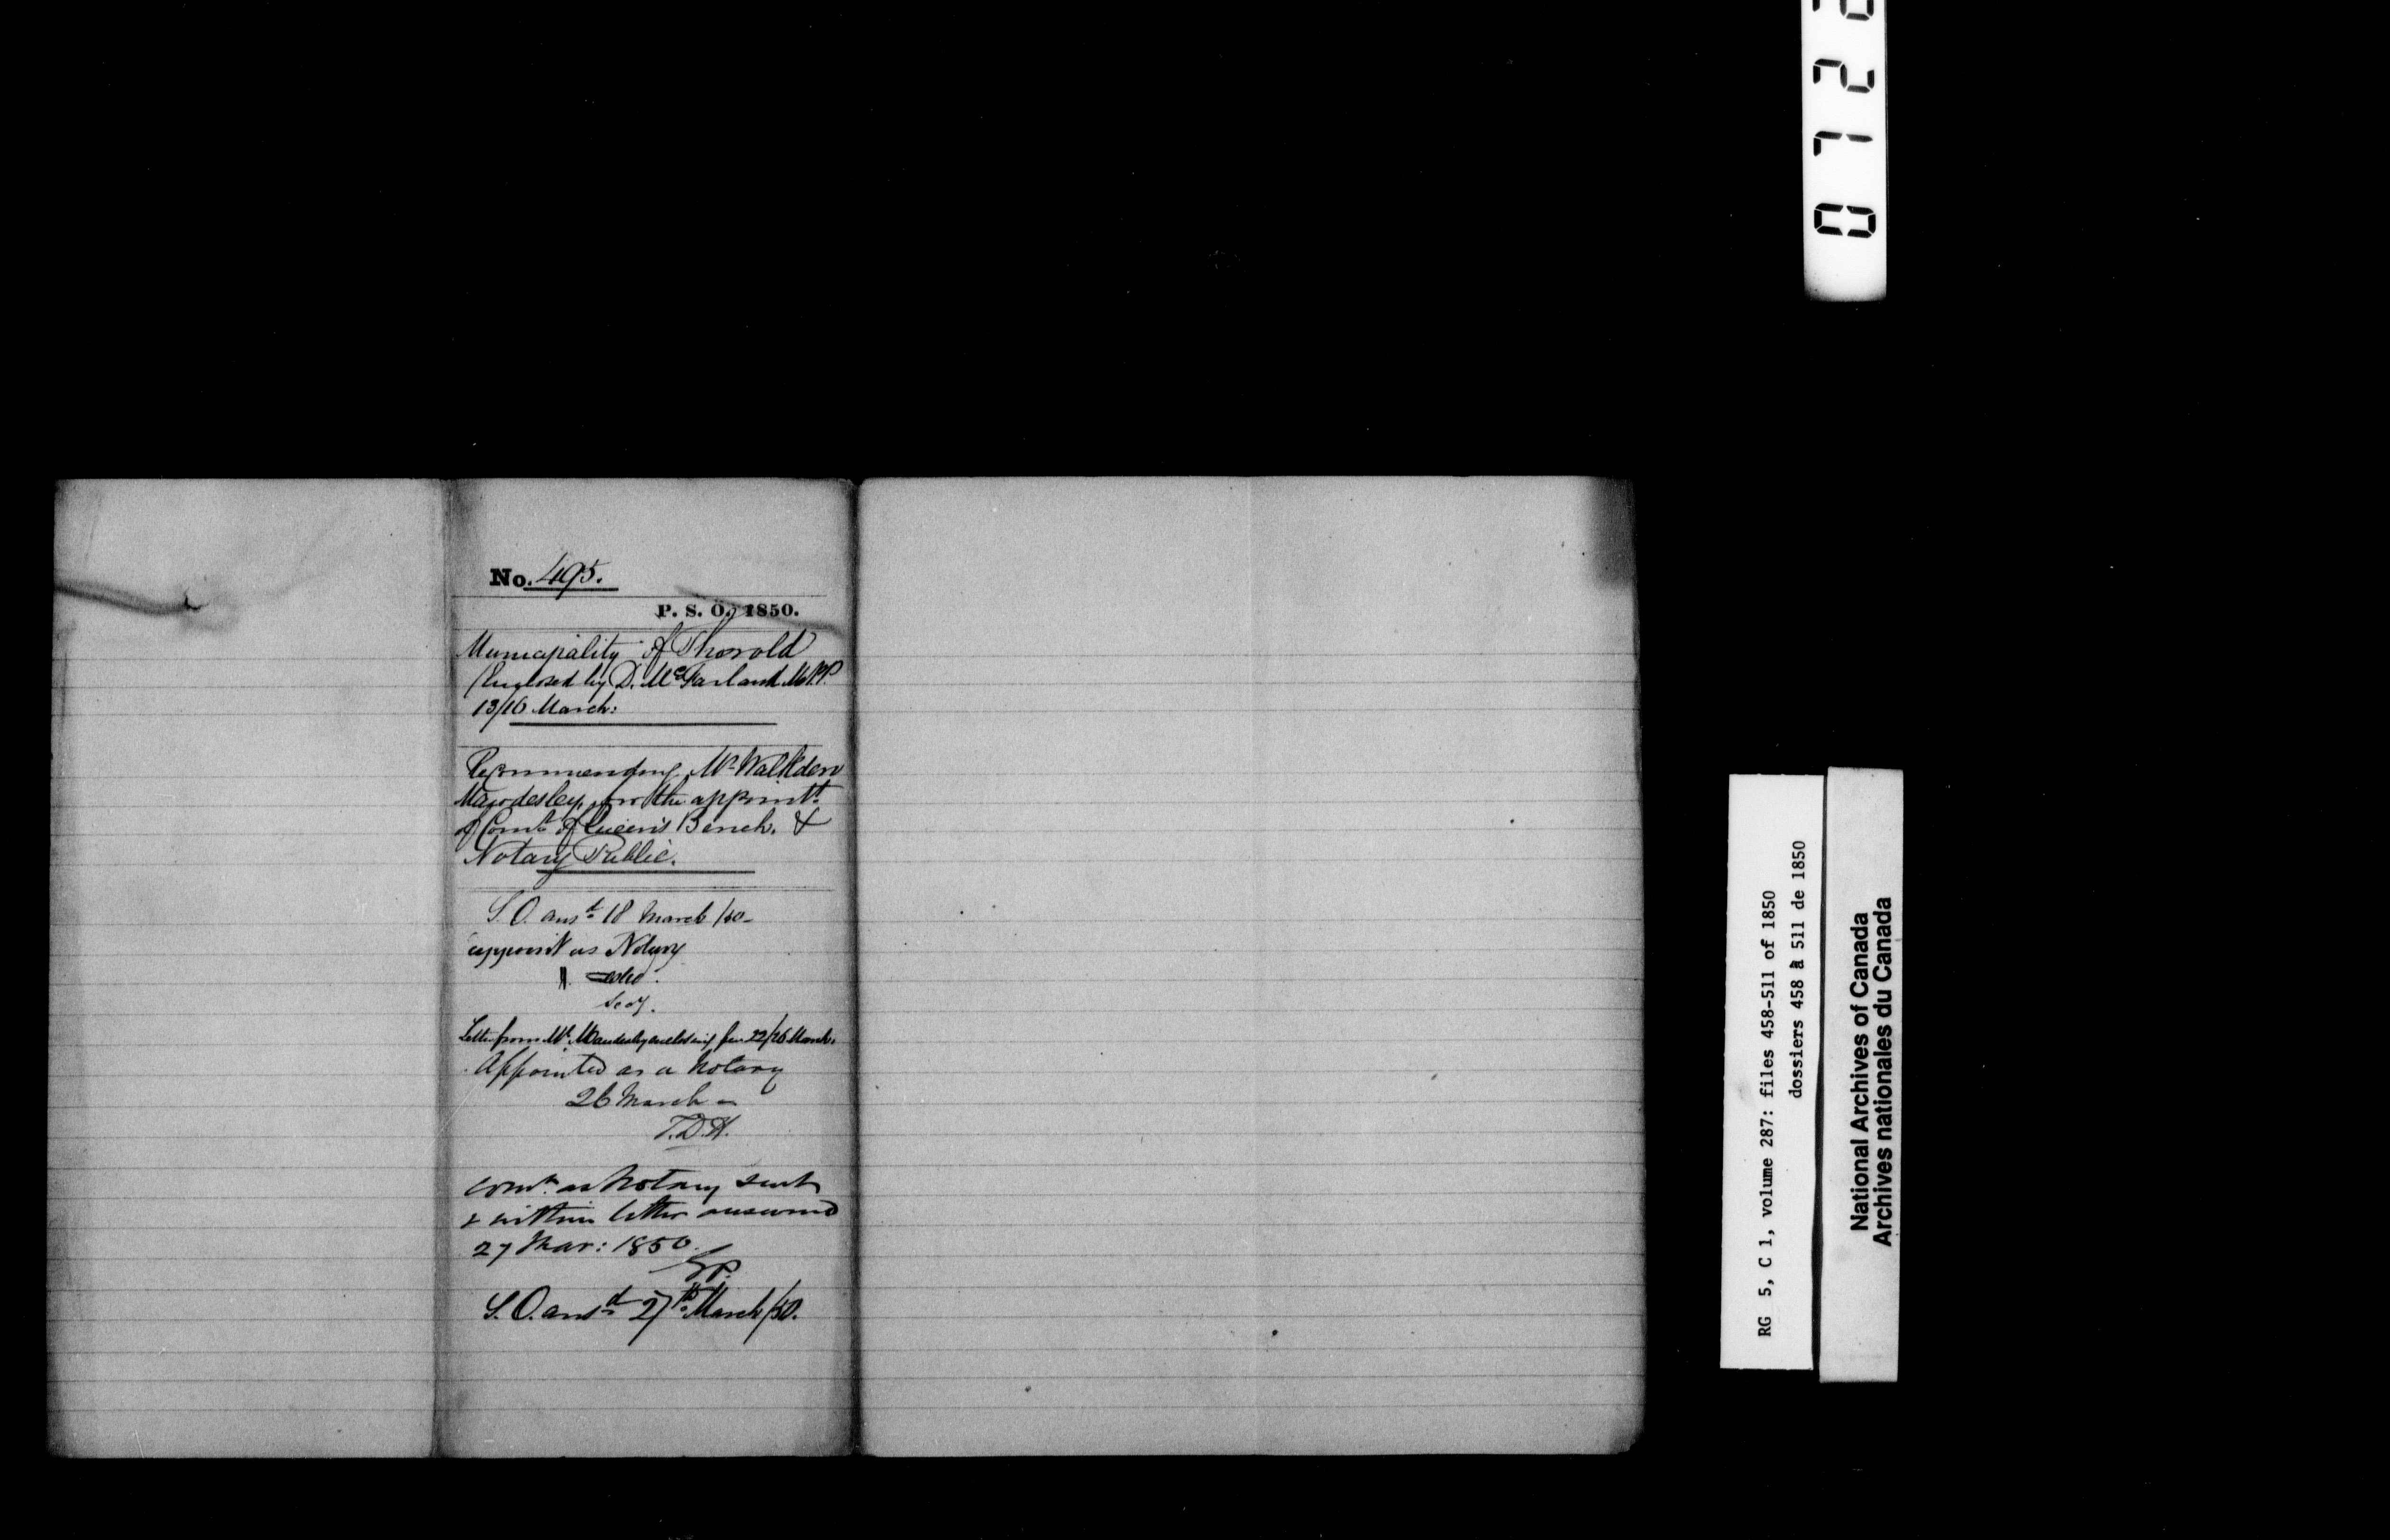 No. 495.
P. S. O., 1850.
Municipality of Thorold
(Enclosed by D. McFarland M.P.P.
13/16 March:
Recommending Mr
for the appointt.
of Comr. of Queen's Bench. &
Notary Public.
S.O. ansd. 18 March /50 -
appoint as Notary
Letter from Mr. enclosing fee 22/26 March.
Appointed as a Notary
26 March -
T.D.H.
Comn. as Notary sent
& within letter answered
27 Mar: 1850.
S.O. ansd. 27th March/50.
0 7 2
RG 5, C 1, volume 287: files 458-511 of 1850
dossiers 458 à 511 de 1850
National Archives of Canada
Archives nationales du Canada